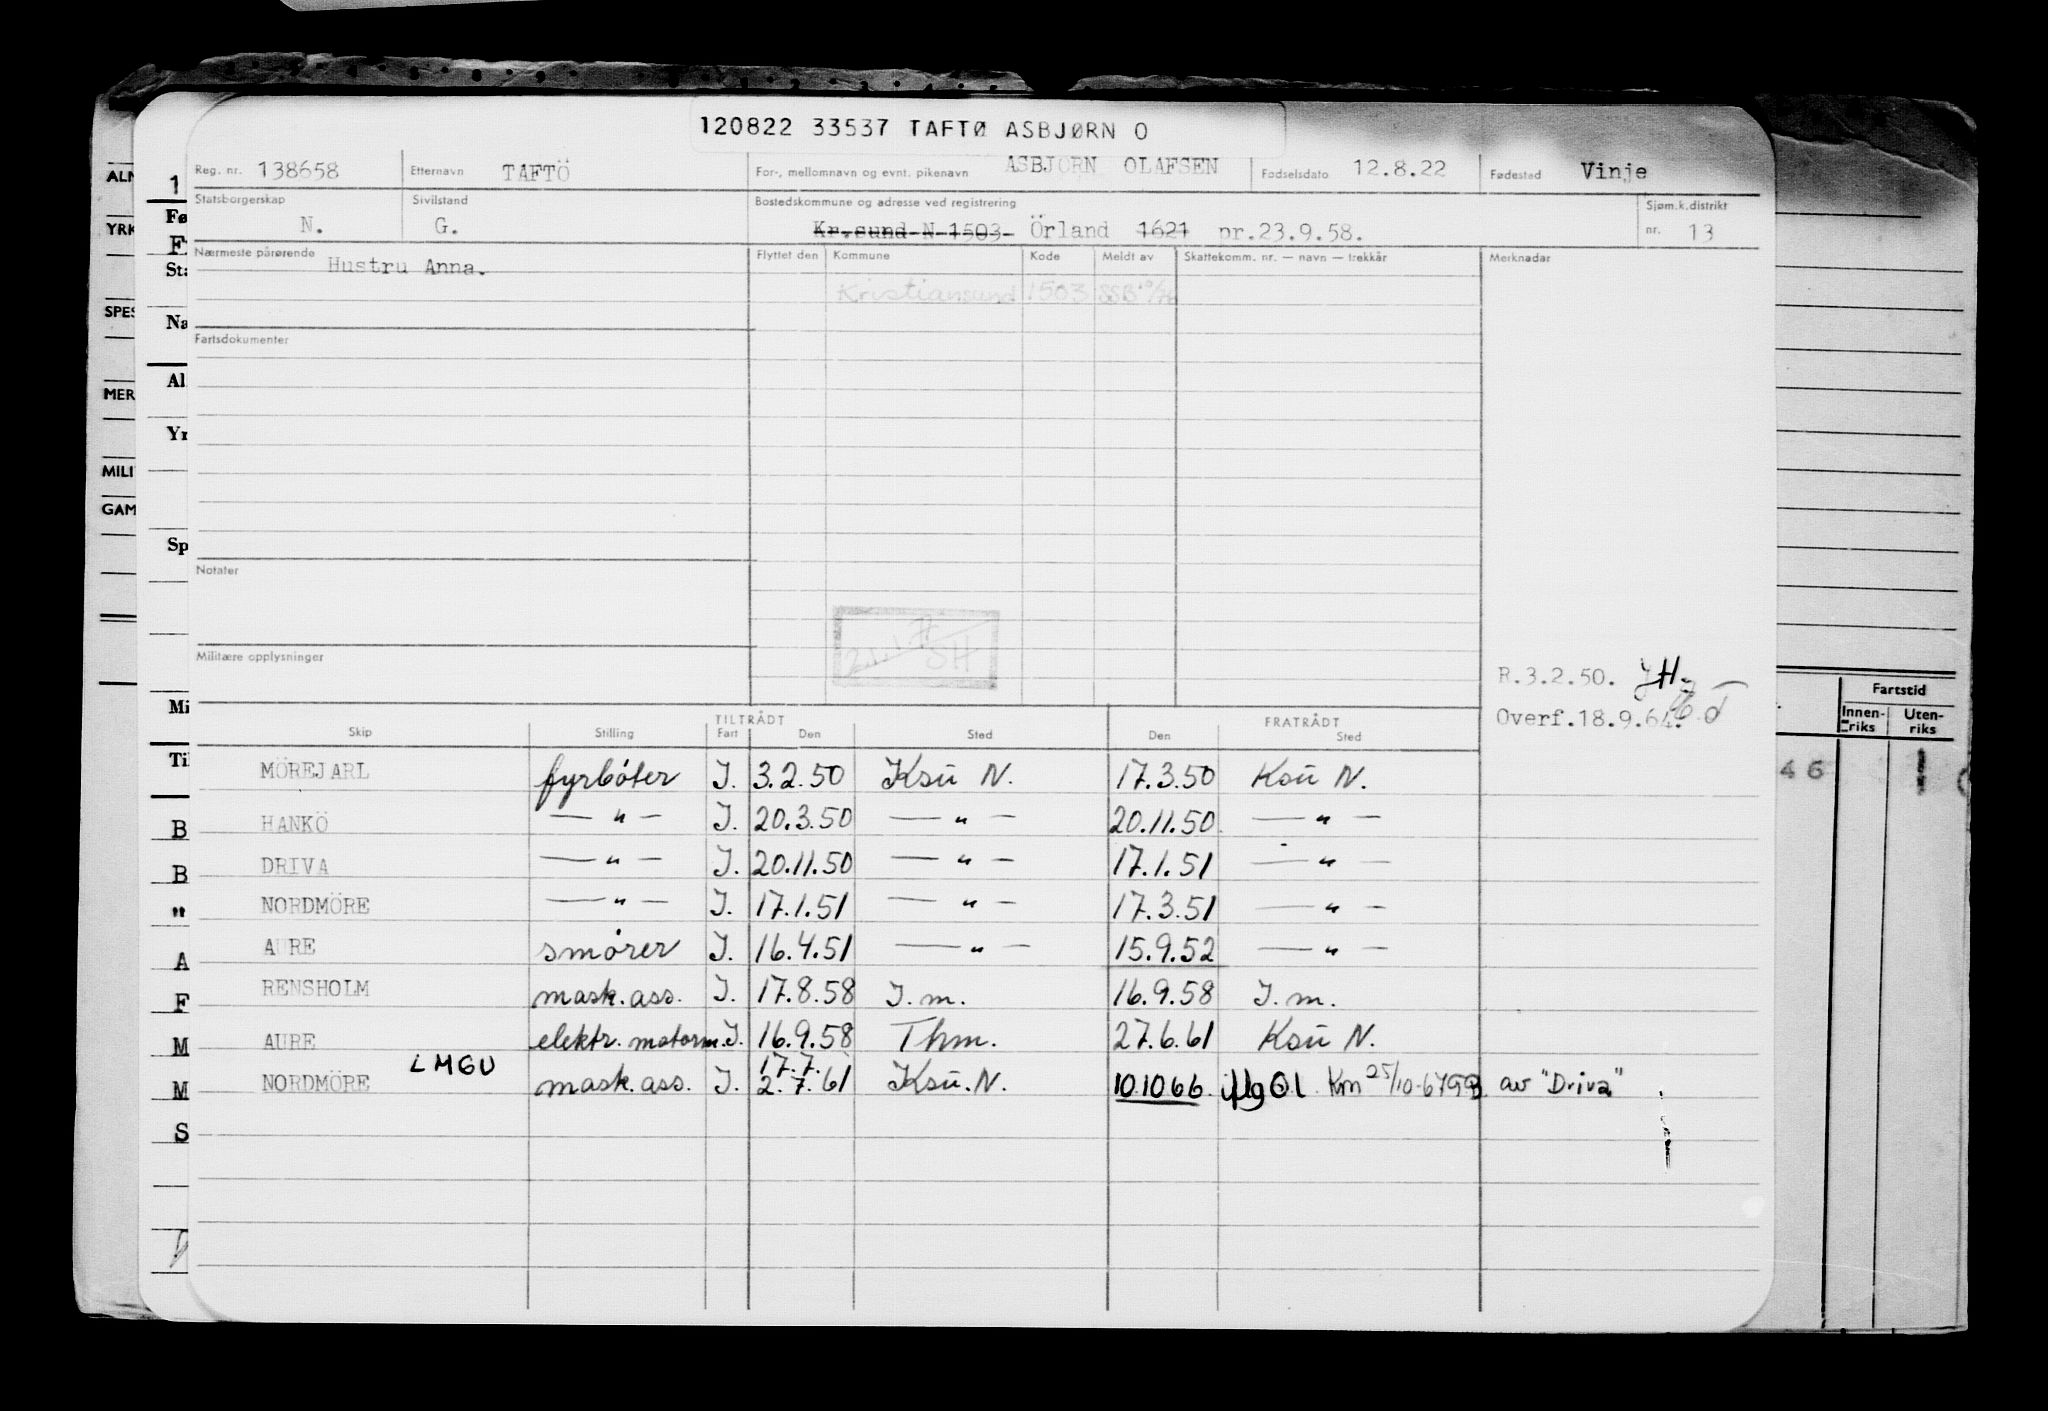 120822 33537 TAFTØ ASBJØRN O
Reg. nr. 138658 Etternavn TAFTÖ For-, mellomnavn og evnt. pikenavn ASBJÖRN OLAFSEN Fødselsdato 12.8.22 Fødested Vinje
Statsborgerskap N. Sivilstand G. Bostedskommune og adresse ved registrering Kr.sund N 1503 Örland 1621 pr.23.9.58. Sjøm.k.distrikt nr. 13
Nærmeste pårørende Hustru Anna. Flyttet den Kommune Kode Meldt av Skattekomm. nr. — navn — trekkår Merknader
Kristiansund 1503 SSB
Fartsdokumenter
Notater
SH
Militære opplysninger
R.3.2.50. JH.
Overf.18.9.64.
TILTRÅDT FRATRÅDT
Skip Stilling Fart Den Sted Den Sted
MÖREJARL fyrbóter I. 3.2.50 Ksū N. 17.3.50 Ksū N.
HANKÖ — " — I. 20.3.50 — " — 20.11.50 — " —
DRIVA — " — I. 20.11.50 — " — 17.1.51 — " —
NORDMÖRE — " — I. 17.1.51 — " — 17.3.51 — " —
AURE smórer I. 16.4.51 — " — 15.9.52 — " —
RENSHOLM mask. ass. I. 17.8.58 I. m. 16.9.58 I. m.
AURE elektr. motorm. I. 16.9.58 Thm. 27.6.61 Ksū N.
NORDMÖRE LMGU mask. ass. I. 17.7. 2.7.61 Ksū. N. 10.10 66. iflg Ol. Km 25/10-67 av "Driva"
ALM
YRK
SPES
MER
MILI
GAM
1
Fø
F
Sta
Na
Al
Yr
Sp
Mi
Til
B
B
"
A
F
M
M
S
Fartstid
Innen-riks Uten-riks
46 1